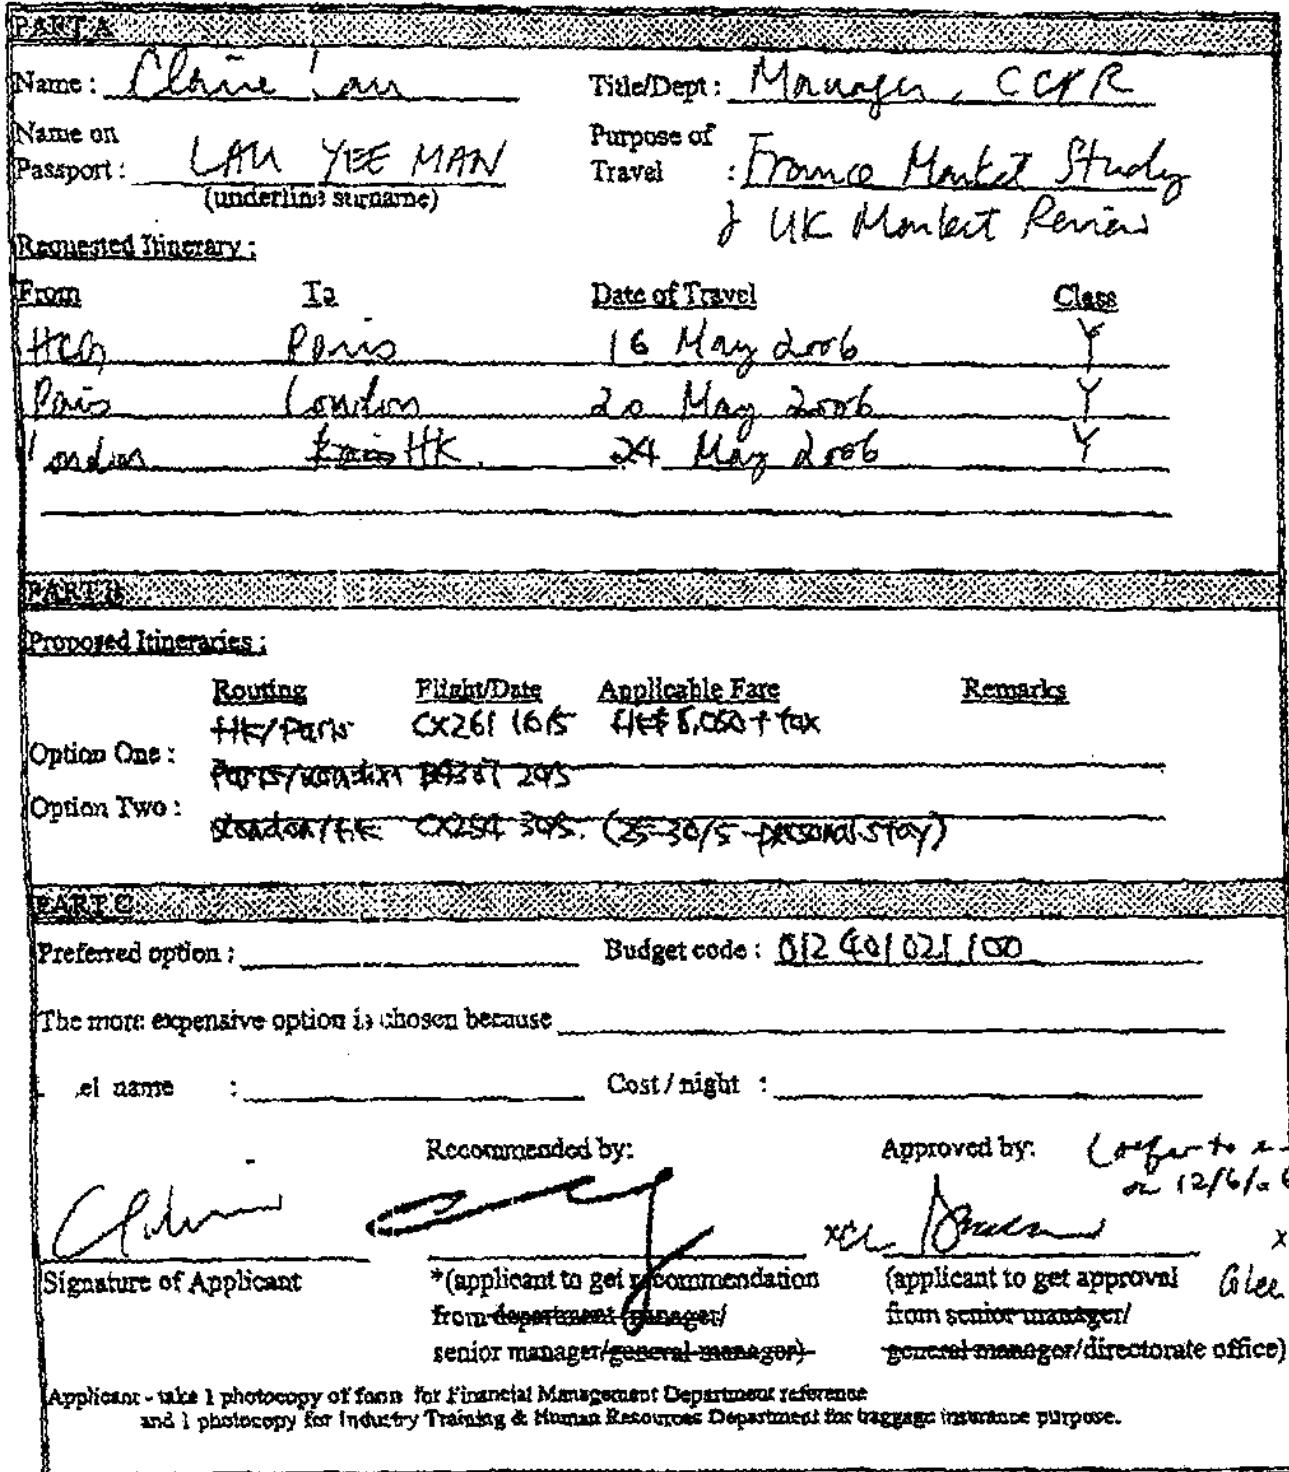 PART A
Name : Claire Lau Title/Dept : Manager, CCPR
Name on Purpose of
Passport : LAU YEE MAN Travel : France Market Study
(underline surname) & UK Market Review
Requested Itinerary :
From To Date of Travel Class
HKG Paris 16 May 2006 Y
Paris London 20 May 2006 Y
London HK. 24 May 2006 Y
PART B
Proposed Itineraries :
Routing Flight/Date Applicable Fare Remarks
HK/Paris CX261 16/5 HK$ 8,060 + tax
Option One :
Paris/London 20/5
Option Two :
London/HK CX254 30/5. (25-30/5 - personal stay)
PART C
Preferred option : Budget code : 012 401 021 100
The more expensive option is chosen because
el name : Cost / night :
Recommended by: Approved by: (refer to
on 12/6/06
Signature of Applicant *(applicant to get recommendation (applicant to get approval
from department manager/ from senior manager/
senior manager/general manager) general manager/directorate office)
Applicant - take 1 photocopy of form for Financial Management Department reference
and 1 photocopy for Industry Training & Human Resources Department for baggage insurance purpose.